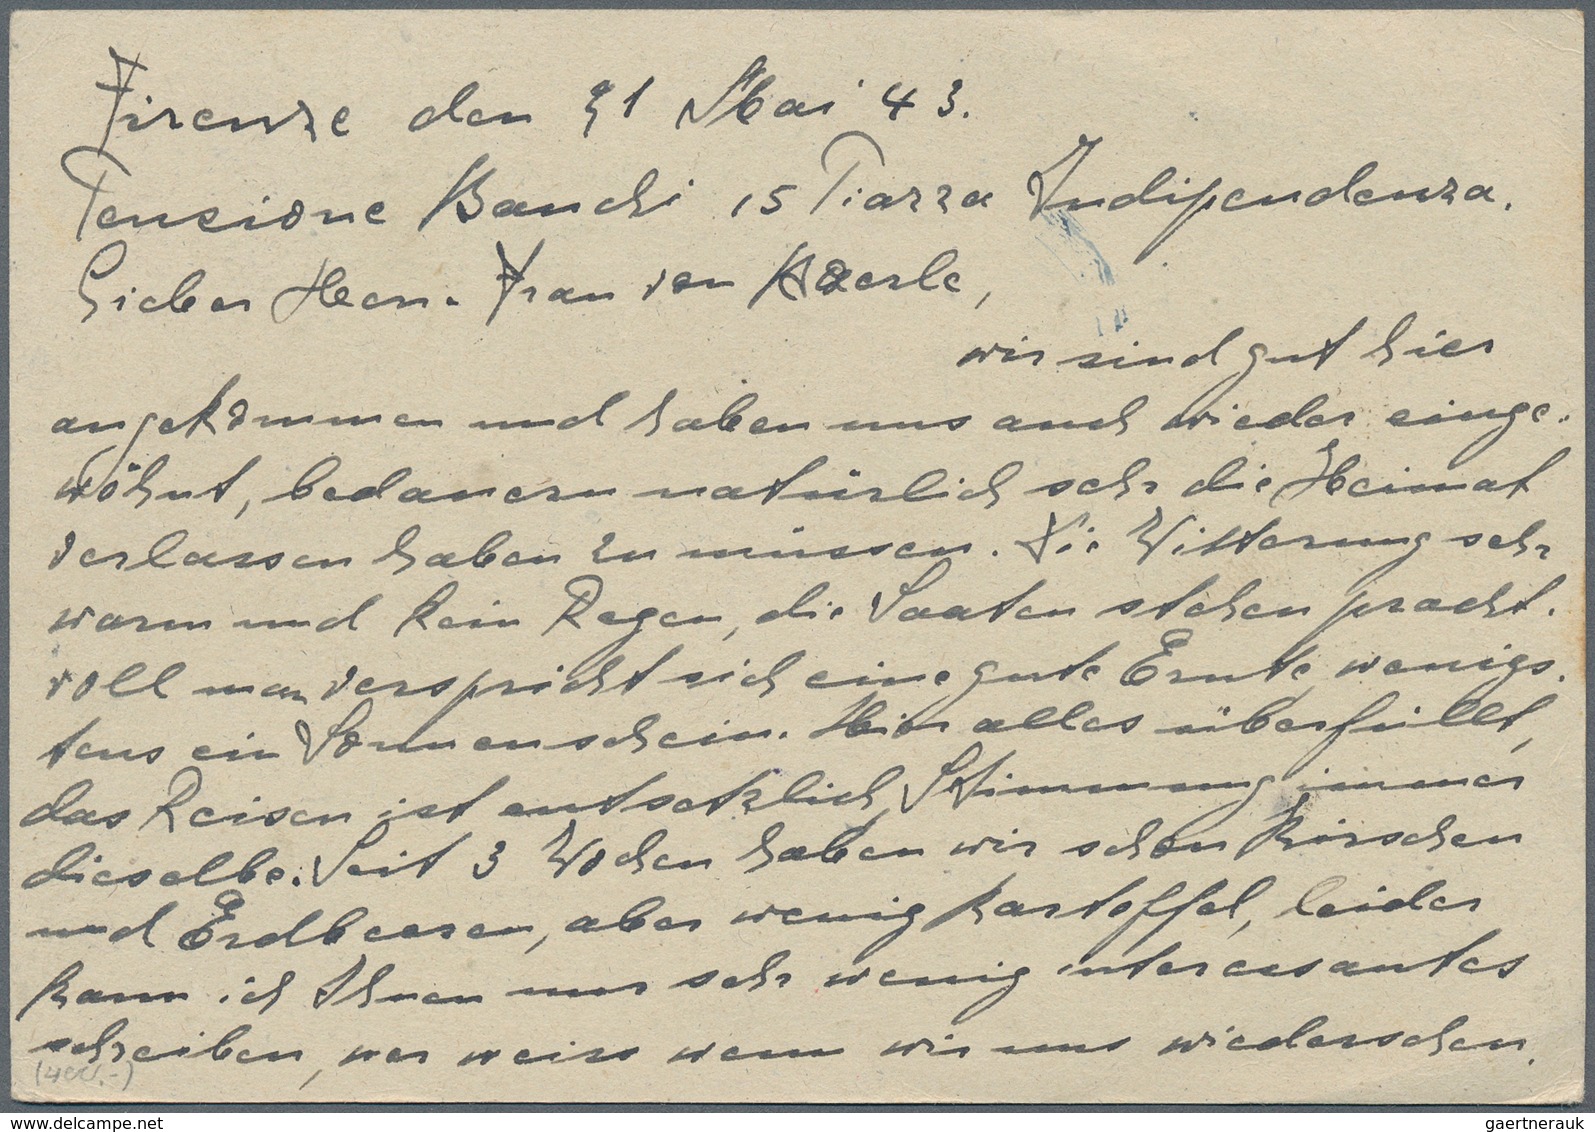 Firenze den 21 Mai 43.
Pensione Banchi 15 Piazza Indipendenza.
Lieber Herr. Frau von
wir sind gut hier
angekommen und haben uns auch wieder einge-
wöhnt, bedauern natürlich sehr die Heimat
verlassen haben zu müssen. Die Witterung sehr
warm und kein Regen, die Saaten stehen pracht-
voll man verspricht sich eine gute Ernte, wenigs-
tens ein Sonnenschein. Hier alles überfüllt,
das Reisen ist entsetzlich, Stimmung immer
dieselbe. Seit 3 Wochen haben wir schon Kirschen
und Erdbeeren, aber wenig Kartoffel, leider
kann ich Ihnen nur sehr wenig interessantes
schreiben, wer weiss wenn wir uns wiedersehen.
(400.-)
gaertnerauk